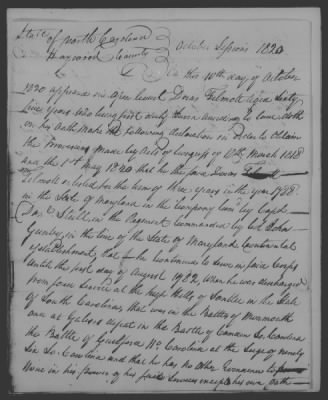 State of North Carolina
Haywood County October Sessions 1820
On the 10th day of October
1820 appeared in open Court Dorus Filmott aged Sixty
five years who being first duly sworn according to Law doth
on his oath make the following declaration in order to obtain
the provisions made by Acts of Congress of 18th March 1818
and the 1st of May 1820 that he the said Dorus
Filmott enlisted for the term of three years in the year 1778
in the State of Maryland in the Company Com'd by Capt
in the Regiment Commanded by Col John
Gunby in the line of the State of Maryland Continental
establishment, that he continued to serve in said Corps
until the first day of August 1782, when he was discharged
from said service at the High Hills of Santee in the State
of South Carolina, that was in the Battles of Monmouth
one at in the Battle of Camden So. Carolina
the Battle of Guilford No. Carolina at the Siege of ninety
Six So. Carolina and that he has no other
None in his power, of his said Services except his own Oath